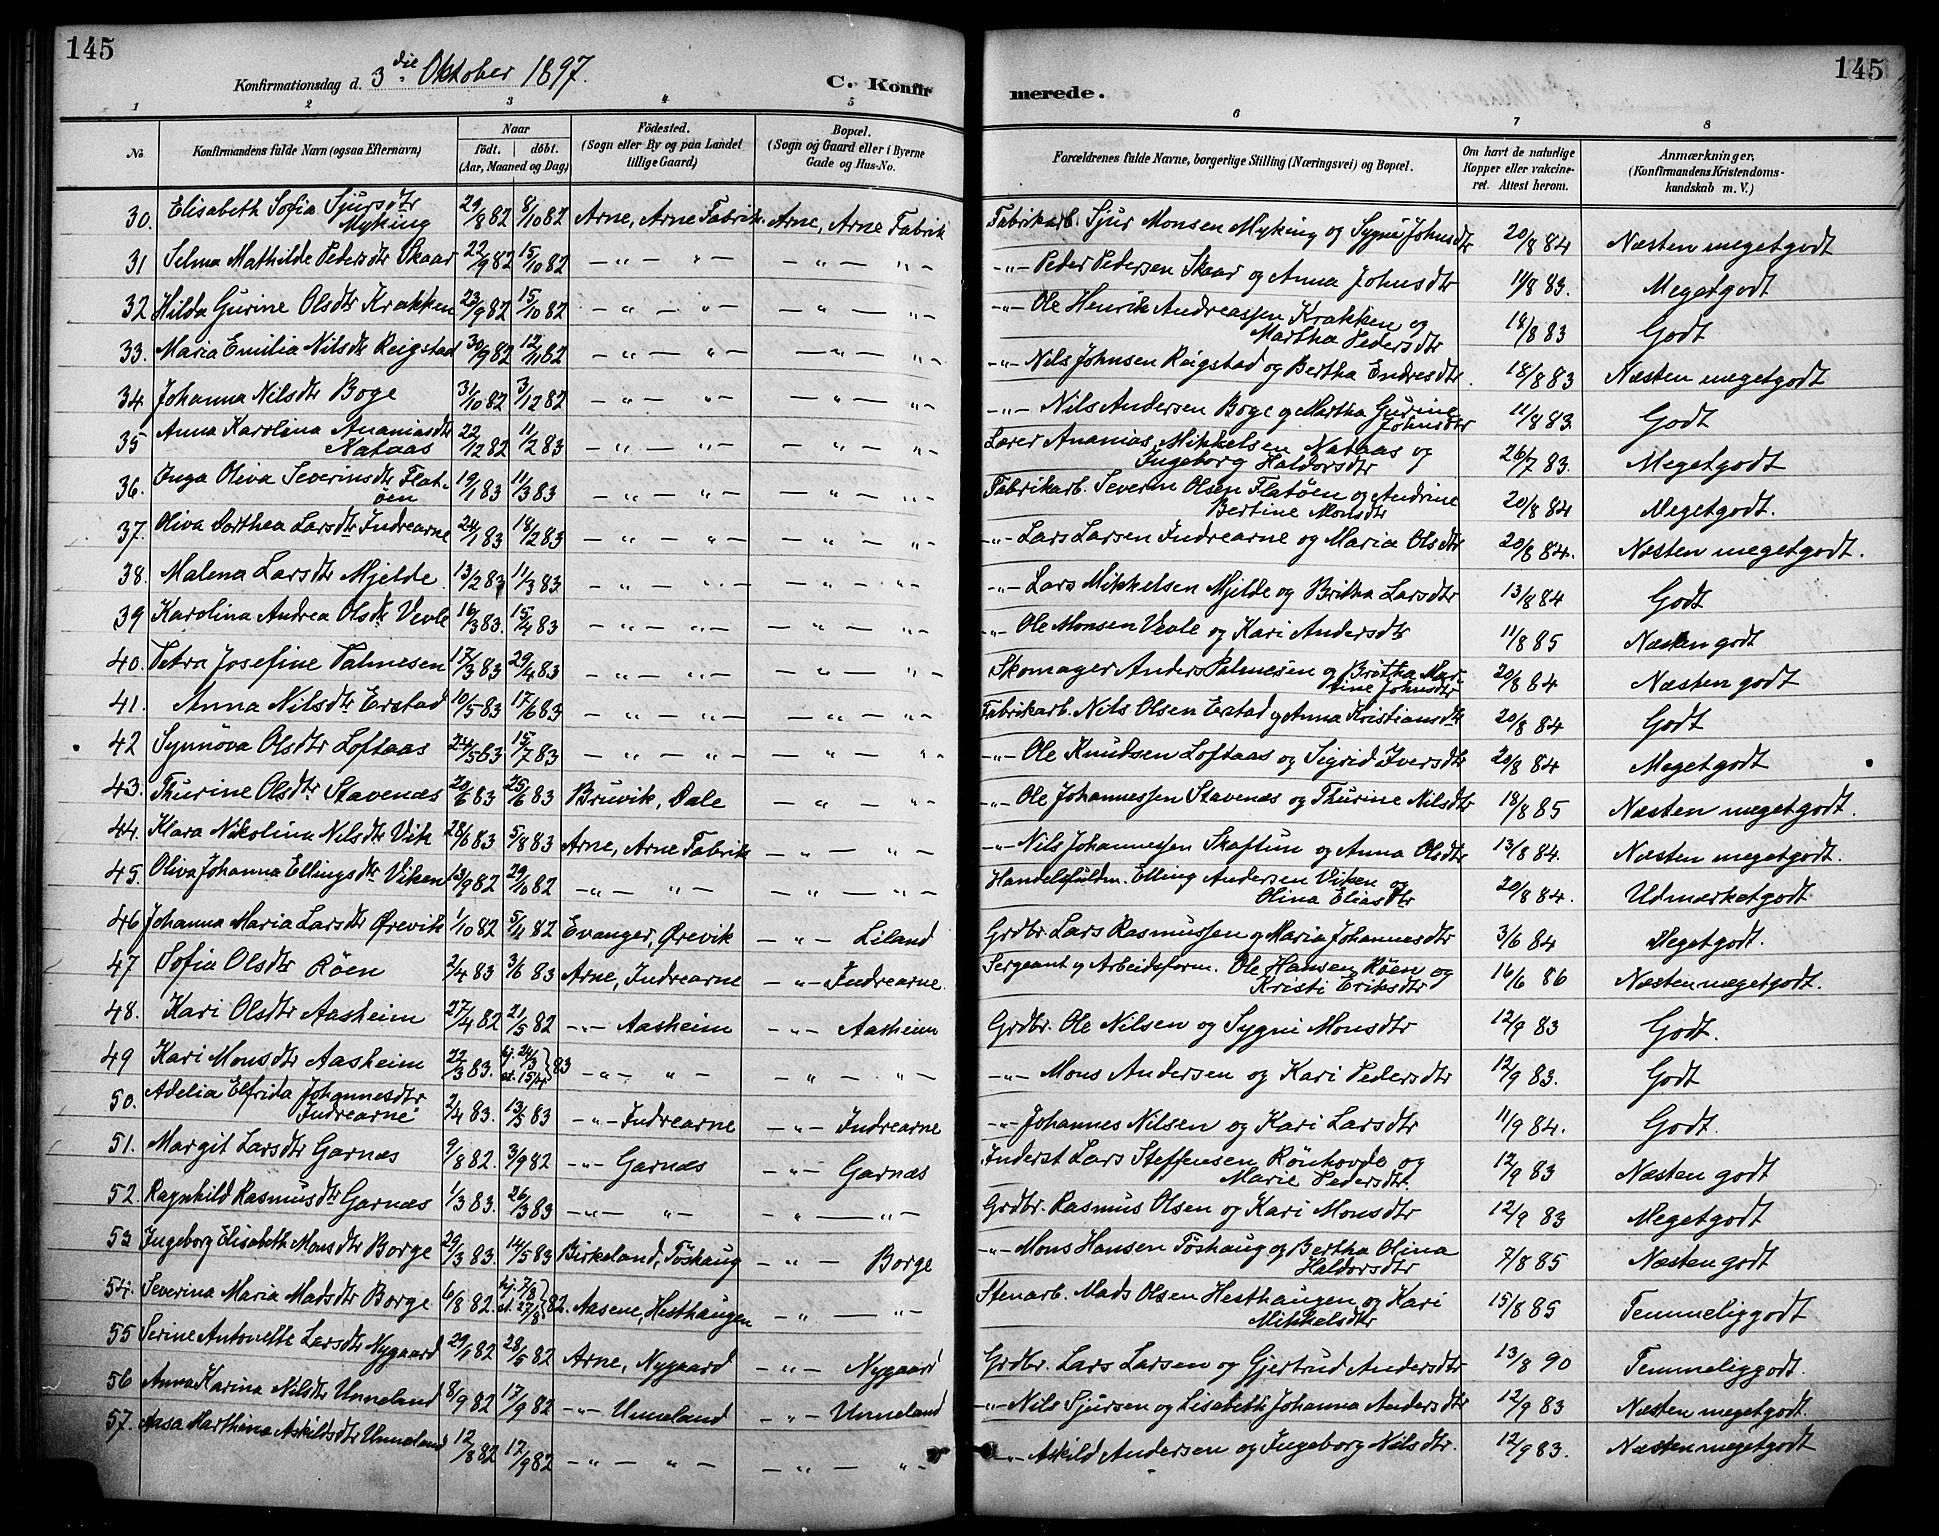 145
145
Konfirmationsdag d. 3die Oktober 1897.
C. Konfirmerede.
1 2 3 4 5 6 7 8
No. | Konfirmandens fulde Navn (ogsaa Efternavn) | Naar födt. döbt. (Aar, Maaned og Dag) | Födested. (Sogn eller By og paa Landet tillige Gaard) | Bopæl. (Sogn og Gaard eller i Byerne Gade og Hus-No. | Forældrenes fulde Navne, borgerlige Stilling (Næringsvei) og Bopæl. | Om havt de naturlige Kopper eller vakcineret. Attest herom. | Anmærkninger. (Konfirmandens Kristendomskundskab m. V.)
30. Elisabeth Sofia Sjursdtr Myking 29/8 82 8/10 82 Arne, Arne Fabrik. Arne, Arne Fabrik Fabrikarb. Sjur Monsen Myking og Sygni Johnsdtr 20/8 84 Næsten megetgodt
31 Selma Mathilde Pedersdtr Skaar 22/9 82 15/10 82 — „ — „ — — „ — „ -„- Peder Pedersen Skaar og Anna Johnsdtr 11/8 83. Megetgodt
32 Hilda Gurine Olsdtr Krakken 23/9 82 15/10 82 — „ — „ — — „ — „ -„- Ole Henrik Andreassen Krakken og Martha Pedersdtr 18/8 83 Godt
33. Maria Emilia Nilsdtr Reigstad 30/9 82 12/11 82 — „ — „ — — „ — „ -„- Nils Johnsen Reigstad og Bertha Endresdtr. 18/8 83 Næsten megetgodt
34. Johanna Nilsdtr Boge 31/10 82 3/12 82 — „ — „ — — „ — „ -„- Nils Andersen Boge og Martha Gurine Johnsdtr 11/8 83. Godt
35 Anna Karolina Ananiasdtr Nataas 22/12 82 11/2 83 — „ — „ — — „ — „ Lærer Ananias Mikkelsen Nataas og Ingeborg Haldorsdtr 26/7 83. Megetgodt
36. Inga Oliva Severinsdtr Flatöen 19/1 83 11/3 83 — „ — „ — — „ — „ Fabrikarb. Severin Olsen Flatöen og Andrine Bertine Monsdtr 20/8 84 Megetgodt.
37. Oliva Dorthea Larsdtr Indrearne 24/1 83 18/2 83 — „ — „ — — „ — „ -„- Lars Larsen Indrearne og Maria Olsdtr 20/8 84. Næsten megetgodt.
38. Malena Larsdtr Mjelde 13/2 83 11/3 83 — „ — „ — — „ — „ -„- Lars Mikkelsen Mjelde og Britha Larsdtr 13/8 84 Godt
39 Karolina Andrea Olsdtr Vevle 16/3 83. 15/4 83 — „ — „ — — „ — „ -„- Ole Monsen Vevle og Kari Andersdtr 11/8 85 Næsten godt
40. Petra Josefine Palmesen 17/3 83 29/4 83 — „ — „ — — „ — „ Skomager Anders Palmesen og Britha Martine Johnsdtr 20/8 84 Næsten godt
41. Anna Nilsdtr Erstad 10/5 83 17/6 83 — „ — „ — — „ — „ Fabrikarb. Nils Olsen Erstad og Anna Kristiansdtr 20/8 84 Godt
42 Synnöva Olsdtr Loftaas 24/5 83 15/7 83 — „ — „ — — „ — „ -„- Ole Knudsen Loftaas og Sigrid Iversdtr 20/8 84 Megetgodt
43. Thurine Olsdtr Stavenæs 20/6 83 25/6 83 Bruvik, Dale — „ — „ -„- Ole Johannessen Stavenæs og Thurine Nilsdtr 18/8 85 Næsten megetgodt.
44. Klara Nikolina Nilsdtr Vik 28/6 83 5/8 83 Arne, Arne Fabrik — „ — „ -„- Nils Johannessen Skaftun og Anna Olsdtr 13/8 84. Næsten megetgodt.
45. Oliva Johanna Ellingsdtr Viken 13/9 82 29/10 82 — „ — „ — — „ — „ Handelsfuldm. Elling Andersen Viken og Olina Eliasdtr 20/8 84. Udmærketgodt
46 Johanna Maria Larsdtr Ørevik 1/10 82 5/11 82 Evanger, Ørevik — „ — Liland Grdbr. Lars Rasmussen og Maria Johannesdtr 3/6 84 Megetgodt.
47 Sofia Olsdtr Röen 2/4 83 3/6 83 Arne, Indrearne — „ — Indrearne. Sergeant og Arbeidsform. Ole Hansen Röen og Kristi Eriksdtr 16/6 86 Næsten megetgodt.
48. Kari Olsdtr Aasheim 27/4 82 21/5 82 -„- Aasheim — „ — Aasheim Grdbr. Ole Nilsen og Sygni Monsdtr 12/9 83 Godt.
49 Kari Monsdtr Aasheim 22/3 83. hj. 24/3 st. 15/4 } 83 — „ — „ — — „ — „ — -„- Mons Andersen og Kari Pedersdtr 12/9 83. Godt
50. Adelia Elfrida Johannesdtr Indrearne 2/4 83. 13/5 83 -„- Indrearne — „ — Indrearne -„- Johannes Nilsen og Kari Larsdtr 11/9 84. Godt.
51. Margit Larsdtr Garnæs 9/8 82. 3/9 82 -„- Garnæs — „ — Garnæs Inderst Lars Steffensen Rönhovde og Marie Pedersdtr. 12/9 83 Næsten godt
52. Ragnhild Rasmusdtr Garnæs 1/3 83. 26/3 83 — „ — „ — — „ — „ — Grdbr. Rasmus Olsen og Kari Monsdtr 12/9 83 Megetgodt
53 Ingeborg Elisabeth Monsdtr Borge 29/3 83. 14/5 83 Birkeland, Töshaug — „ — Borge -„- Mons Hansen Töshaug og Bertha Olina Haldorsdtr 7/8 85 Næsten godt
54. Severina Maria Madsdtr Borge 6/8 82. hj. 7/8 st. 27/8 } 82. Aasene, Hesthaugen — „ — „ — Stenarb. Mads Olsen Hesthaugen og Kari Mikkelsdtr 15/8 85 Temmeliggodt
55 Serine Antonette Larsdtr Nygaard 29/1 82 28/5 82 Arne, Nygaard — „ — Nygaard Grdbr. Lars Larsen og Gjertrud Andersdtr 13/8 90 Temmeliggodt.
56 Anna Karina Nilsdtr Unneland 8/9 82 17/9 82 -„- Unneland — „ — Unneland -„- Nils Sjursen og Lisabeth Johanna Andersdtr 12/9 83 Næsten megetgodt.
57. Aasa Marthina Askildsdtr Unneland 12/8 82 12/9 82 — „ — „ — — „ — „ — -„- Askild Andersen og Ingeborg Nilsdtr. 12/9 83. Næsten megetgodt